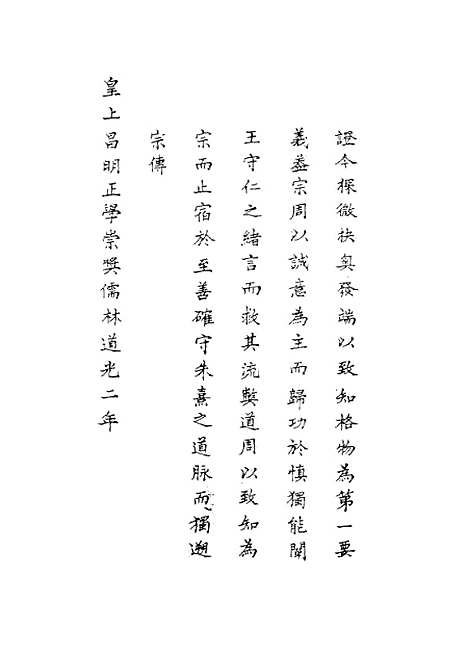 證今探微抉奧發端以致知格物為第一要
義蓋宗周以誠意為主而歸功於慎獨能闡
王守仁之緒言而救其流弊道周以致知為
宗而止宿於至善確守朱熹之道脉而獨遡
宗傳
皇上昌明正學崇奬儒林道光二年